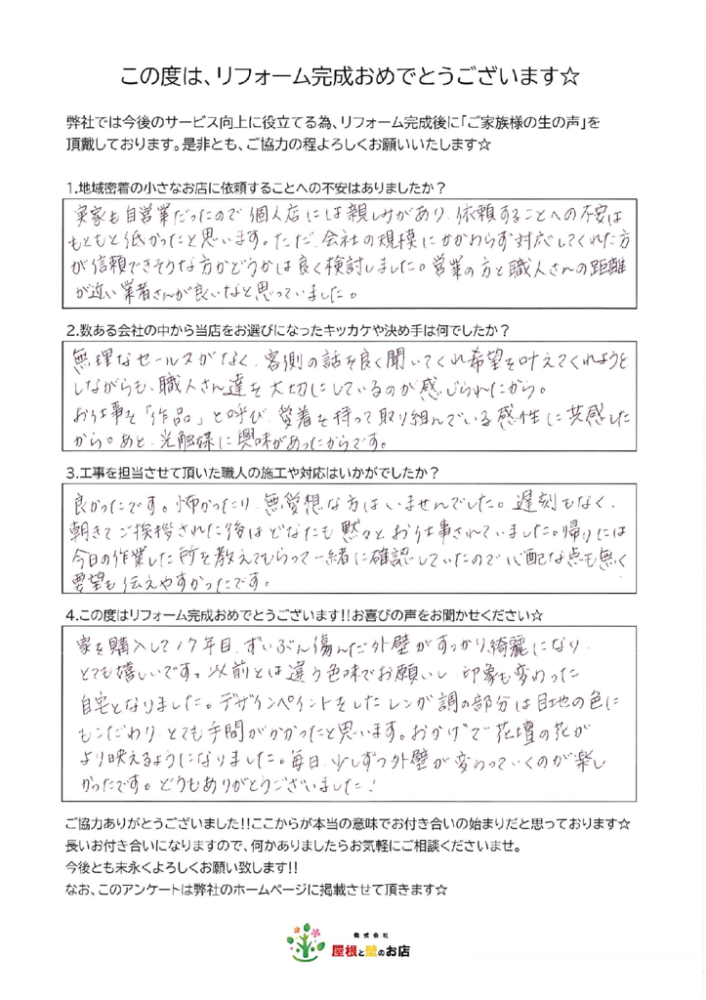 この度は、リフォーム完成おめでとうございます☆
弊社では今後のサービス向上に役立てる為、リフォーム完成後に「ご家族様の生の声」を
頂戴しております。是非とも、ご協力の程よろしくお願いいたします☆
1.地域密着の小さなお店に依頼することへの不安はありましたか？
実家も自営業だったので個人店には親しみがあり、依頼することへの不安は
もともと低かったと思います。ただ、会社の規模にかかわらず対応してくれた方
が信頼できそうな方かどうかは良く検討しました。営業の方と職人さんの距離
が近い業者さんが良いなと思っていました。
2.数ある会社の中から当店をお選びになったキッカケや決め手は何でしたか？
無理なセールスがなく、客側の話を良く聞いてくれ希望を叶えてくれようと
しながらも、職人さん達を大切にしているのが感じられたから。
お仕事を「作品」と呼び、愛着を持って取り組んでいる感性に共感した
から。あと、光触媒に興味があったからです。
3.工事を担当させて頂いた職人の施工や対応はいかがでしたか？
良かったです。怖かったり、無愛想な方はいませんでした。遅刻もなく、
朝きてご挨拶された後はどなたも黙々とお仕事されていました。帰りには
今日の作業した所を教えてもらって一緒に確認していたので心配な点も無く
要望も伝えやすかったです。
4.この度はリフォーム完成おめでとうございます!!お喜びの声をお聞かせください☆
家を購入して17年目、ずいぶん傷んだ外壁がすっかり綺麗になり、
とても嬉しいです。以前とは違う色味でお願いし、印象も変わった
自宅となりました。デザインペイントをしたレンガ調の部分は目地の色に
もこだわり、とても手間がかかったと思います。おかげで花壇の花が
より映えるようになりました。毎日、少しずつ外壁が変わっていくのが楽し
かったです。どうもありがとうございました！
ご協力ありがとうございました!!ここからが本当の意味でお付き合いの始まりだと思っております☆
長いお付き合いになりますので、何かありましたらお気軽にご相談くださいませ。
今後とも末永くよろしくお願い致します!!
なお、このアンケートは弊社のホームページに掲載させて頂きます☆
株式会社
屋根と壁のお店